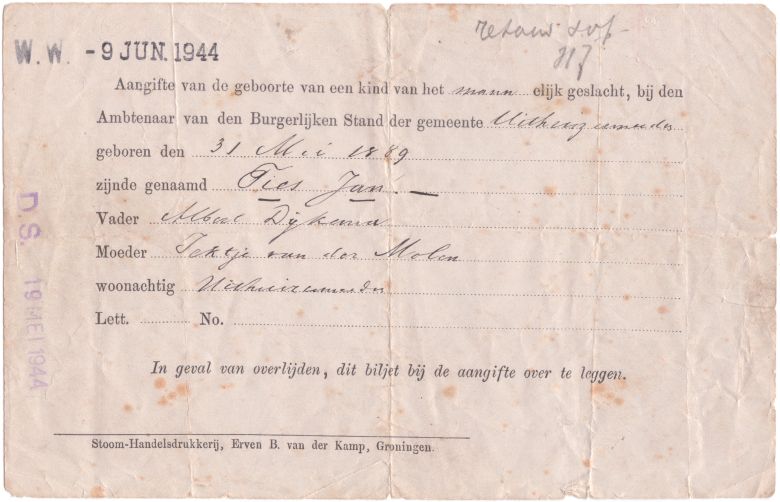 retour
W. W. - 9 JUN. 1944
Aangifte van de geboorte van een kind van het mann elijk geslacht, bij den
Ambtenaar van den Burgerlijken Stand der gemeente Uithuizermeeden
geboren den 31 Mei 1889
zijnde genaamd Ties Jan
Vader Albert Dijkema
Moeder van der Molen
woonachtig Uithuizermeeden
Lett. No.
In geval van overlijden, dit biljet bij de aangifte over te leggen.
Stoom-Handelsdrukkerij, Erven B. van der Kamp, Groningen.
D. S. 19 MEI 1944